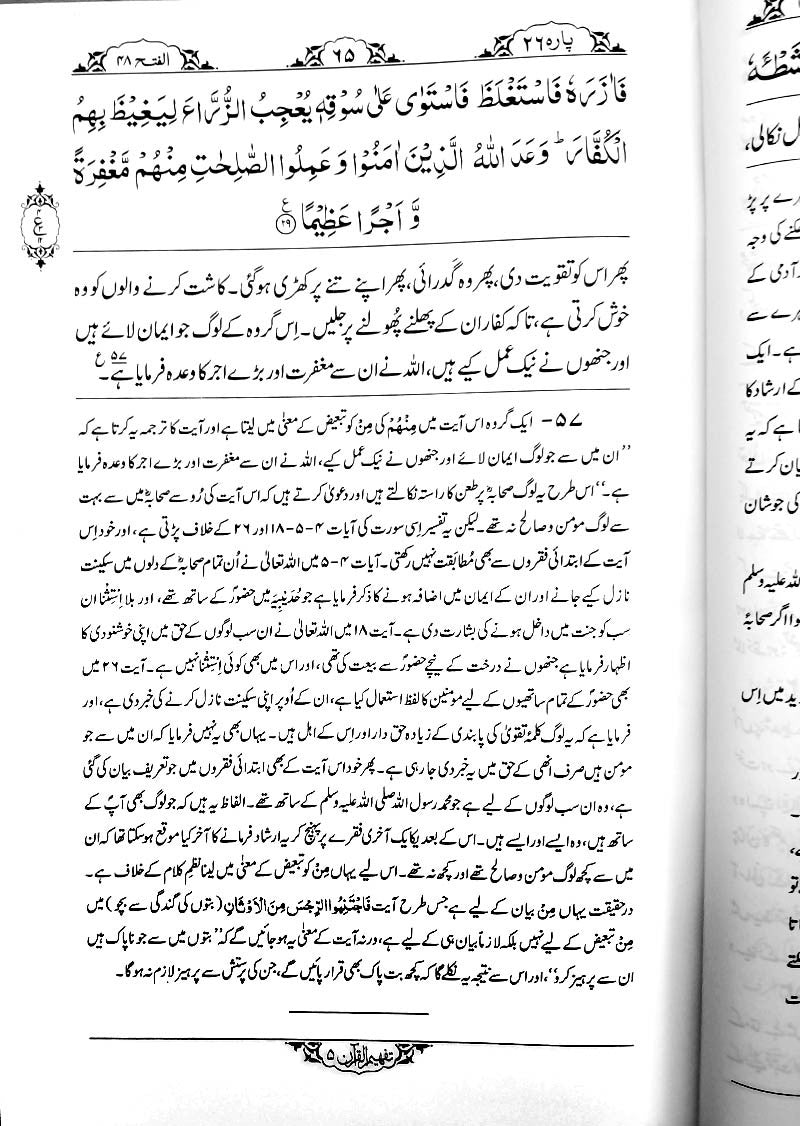 پارہ ۲۶
۶۵
الفتح ۴۸
فَاٰزَرَهٗ فَاسْتَغْلَظَ فَاسْتَوٰى عَلٰى سُوْقِهٖ يُعْجِبُ الزُّرَّاعَ لِيَغِيْظَ بِهِمُ
الْكُفَّارَ ؕ وَعَدَ اللّٰهُ الَّذِيْنَ اٰمَنُوْا وَعَمِلُوا الصّٰلِحٰتِ مِنْهُمْ مَّغْفِرَةً
وَّ اَجْرًا عَظِيْمًا ۲۹ ع
پھر اس کو تقویت دی، پھر وہ گدرائی، پھر اپنے تنے پر کھڑی ہو گئی۔ کاشت کرنے والوں کو وہ
خوش کرتی ہے، تاکہ کفار ان کے پھلنے پُھولنے پر جلیں۔ اِس گروہ کے لوگ جو ایمان لائے ہیں
اور جنھوں نے نیک عمل کیے ہیں، اللہ نے ان سے مغفرت اور بڑے اجر کا وعدہ فرمایا ہے۔ ۵۷ ع
۵۷- ایک گروہ اس آیت میں مِنْهُمْ کی مِنْ کو تبعیض کے معنٰی میں لیتا ہے اور آیت کا ترجمہ یہ کرتا ہے کہ
’’ان میں سے جو لوگ ایمان لائے اور جنھوں نے نیک عمل کیے، اللہ نے ان سے مغفرت اور بڑے اجر کا وعدہ فرمایا
ہے۔‘‘ اس طرح یہ لوگ صحابہؓ پر طعن کا راستہ نکالتے ہیں اور دعویٰ کرتے ہیں کہ اس آیت کی رُو سے صحابہؓ میں سے بہت
سے لوگ مومن و صالح نہ تھے۔ لیکن یہ تفسیر اِسی سورت کی آیات ۴-۵-۱۸ اور ۲۶ کے خلاف پڑتی ہے، اور خود اِس
آیت کے ابتدائی فقروں سے بھی مُطابقت نہیں رکھتی۔ آیات ۴-۵ میں اللہ تعالیٰ نے اُن تمام صحابہؓ کے دلوں میں سکینت
نازل کیے جانے اور ان کے ایمان میں اضافہ ہونے کا ذکر فرمایا ہے جو حُدَیبِیَہ میں حضورؐ کے ساتھ تھے، اور بلا اِستِثنا اِن
سب کو جنت میں داخل ہونے کی بشارت دی ہے۔ آیت ۱۸ میں اللہ تعالیٰ نے ان سب لوگوں کے حق میں اپنی خوشنودی کا
اظہار فرمایا ہے جنھوں نے درخت کے نیچے حضورؐ سے بیعت کی تھی، اور اس میں بھی کوئی اِستِثنا نہیں ہے۔ آیت ۲۶ میں
بھی حضورؐ کے تمام ساتھیوں کے لیے مومنین کا لفظ استعمال کیا ہے، ان کے اُوپر اپنی سکینت نازل کرنے کی خبر دی ہے، اور
فرمایا ہے کہ یہ لوگ کلمۂ تقویٰ کی پابندی کے زیادہ حق دار اور اِس کے اہل ہیں۔ یہاں بھی یہ نہیں فرمایا کہ ان میں سے جو
مومن ہیں صرف انھی کے حق میں یہ خبر دی جا رہی ہے۔ پھر خود اس آیت کے بھی ابتدائی فقروں میں جو تعریف بیان کی گئی
ہے، وہ ان سب لوگوں کے لیے ہے جو محمد رسول اللہ صلی اللہ علیہ وسلم کے ساتھ تھے۔ الفاظ یہ ہیں کہ جو لوگ بھی آپؐ کے
ساتھ ہیں، وہ ایسے اور ایسے ہیں۔ اس کے بعد یکایک آخری فقرے پر پہنچ کر یہ ارشاد فرمانے کا آخر کیا موقع ہو سکتا تھا کہ ان
میں سے کچھ لوگ مومن و صالح تھے اور کچھ نہ تھے۔ اس لیے یہاں مِنْ کو تبعیض کے معنٰی میں لینا نظمِ کلام کے خلاف ہے۔
درحقیقت یہاں مِنْ بیان کے لیے ہے جس طرح آیت فَاجْتَنِبُوا الرِّجْسَ مِنَ الْاَوْثَانِ (بتوں کی گندگی سے بچو) میں
مِنْ تبعیض کے لیے نہیں بلکہ لازماً بیان ہی کے لیے ہے، ورنہ آیت کے معنٰی یہ ہو جائیں گے کہ ’’بتوں میں سے جو ناپاک ہیں
ان سے پرہیز کرو‘‘، اور اس سے نتیجہ یہ نکلے گا کہ کچھ بت پاک بھی قرار پائیں گے، جن کی پرستش سے پرہیز لازم نہ ہوگا۔
تفہیم القرآن ۵